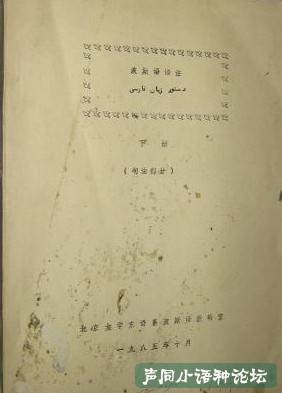 波斯语语法
دستور زبان فارسی
下册
（句法部分）
北京大学东语系波斯语教研室
一九八五年十月
声同小语种论坛